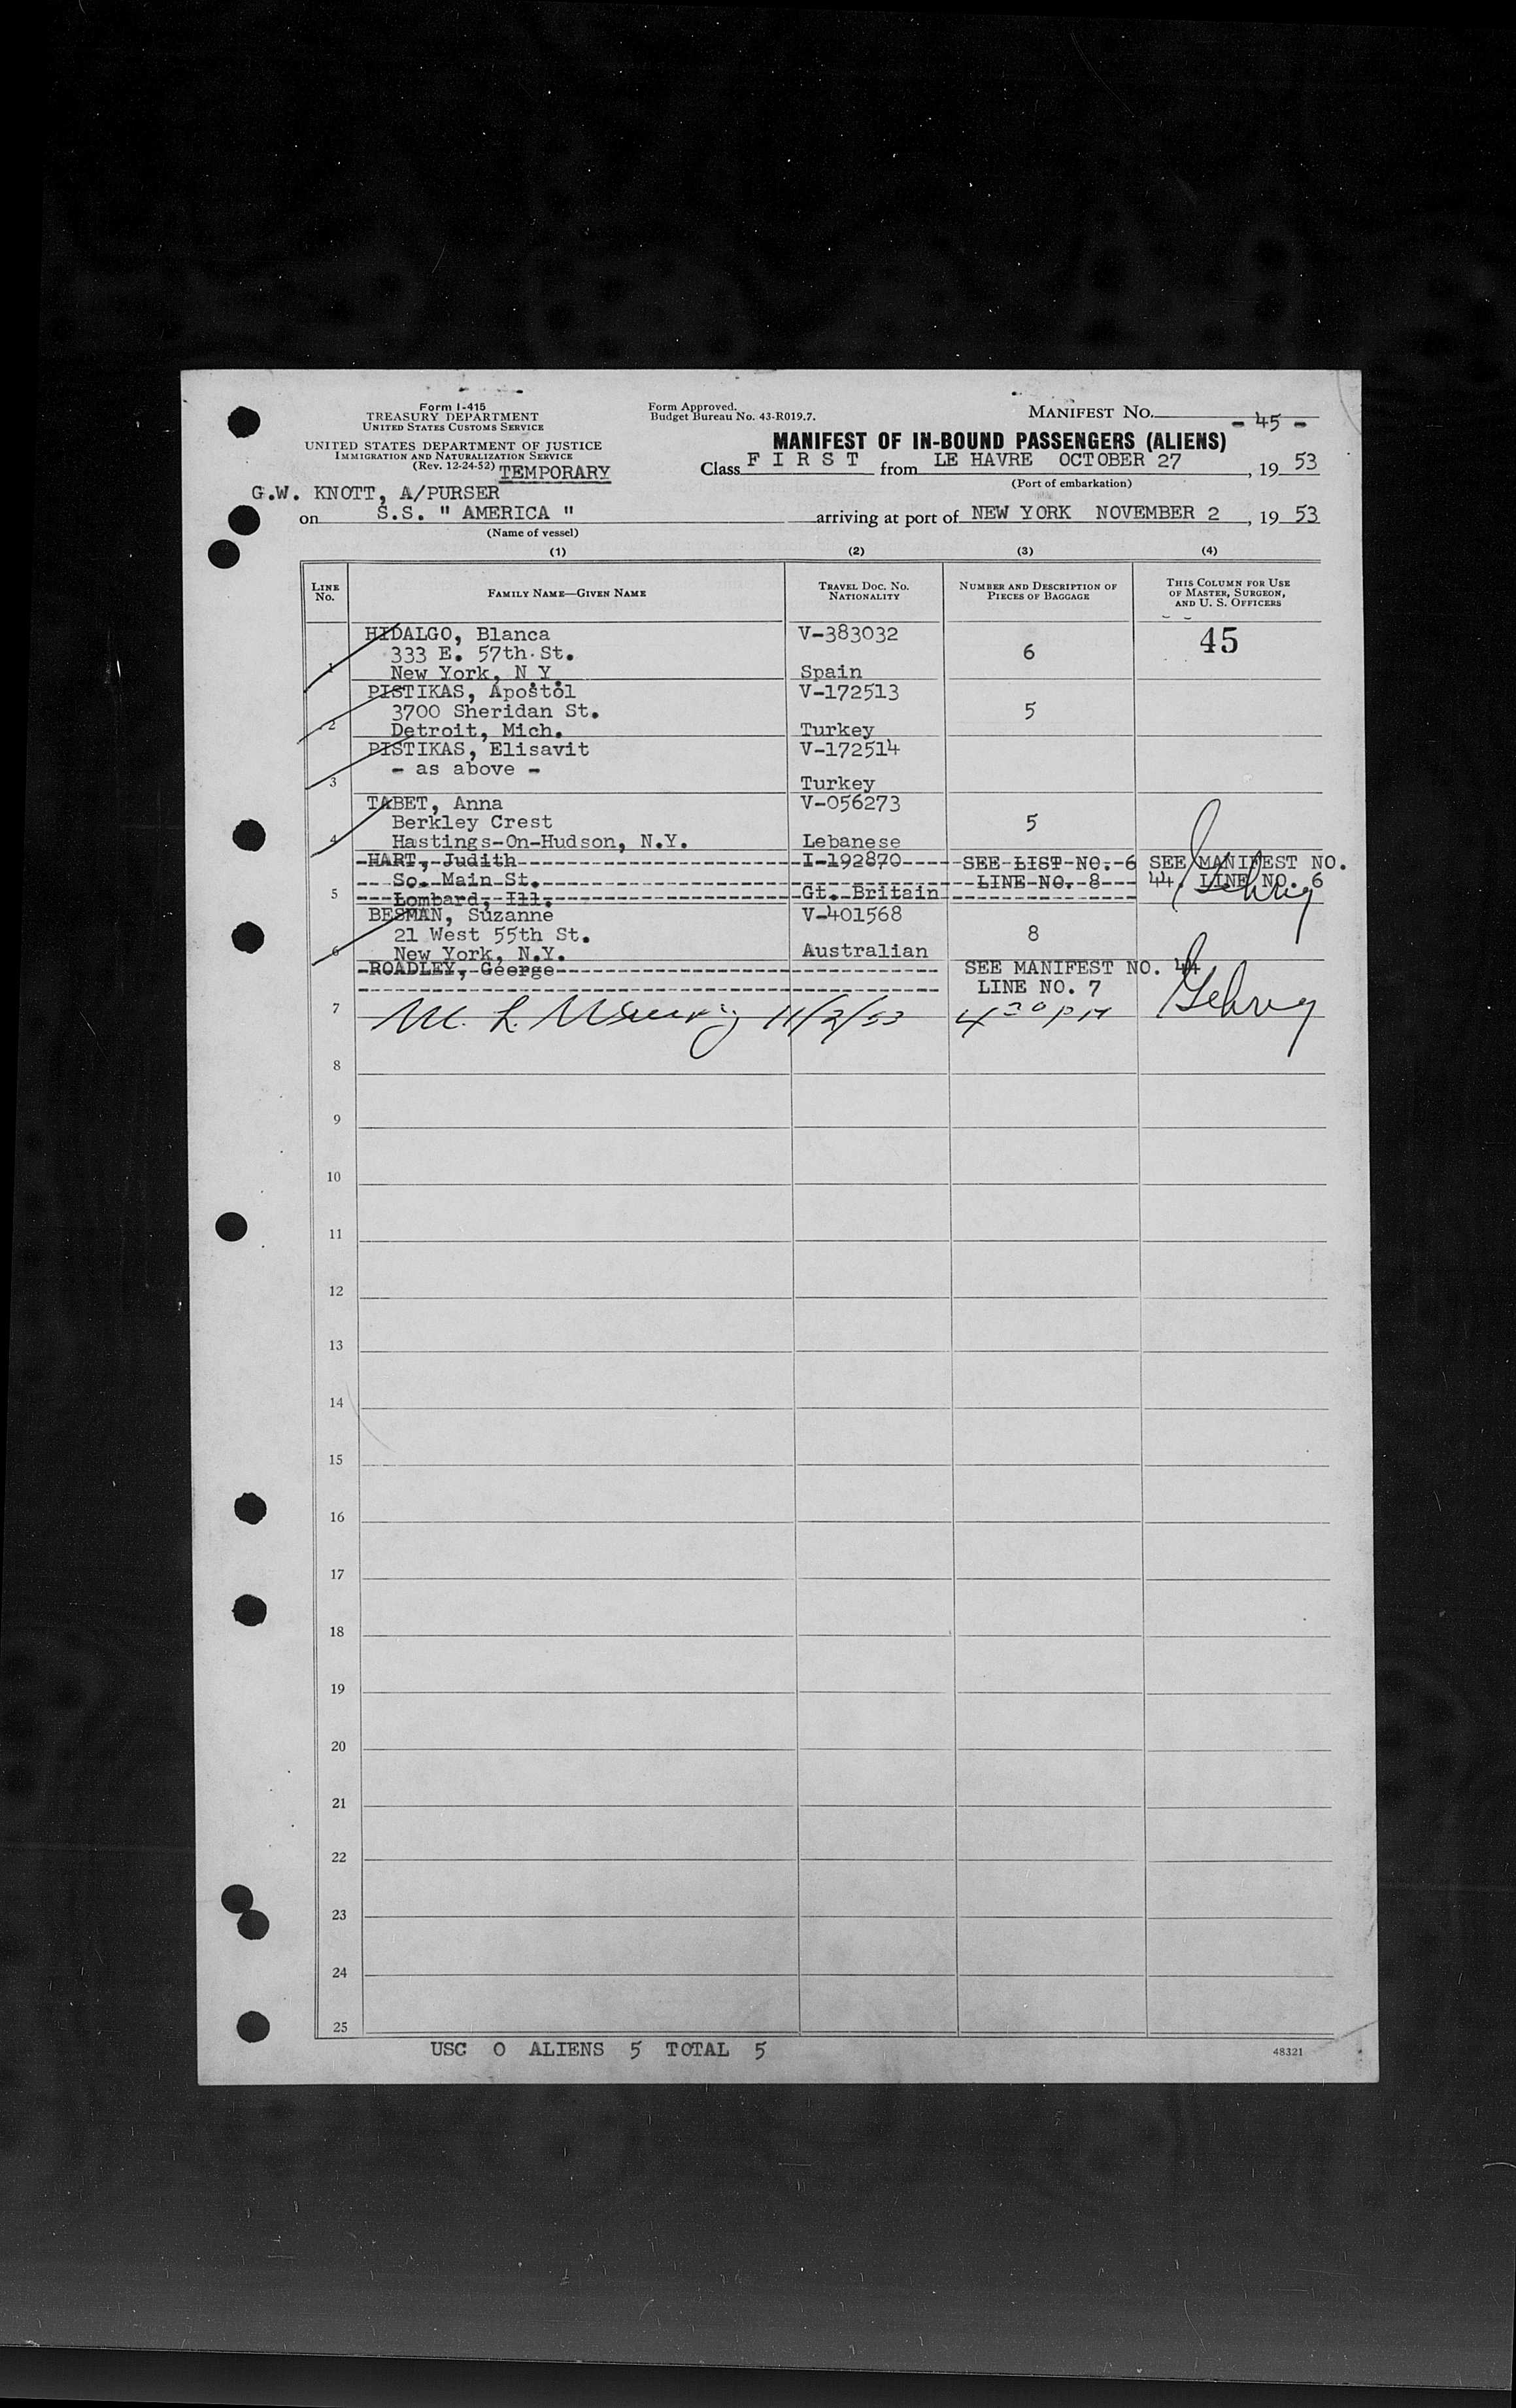 Form I-415
TREASURY DEPARTMENT
UNITED STATES CUSTOMS SERVICE
UNITED STATES DEPARTMENT OF JUSTICE
IMMIGRATION AND NATURALIZATION SERVICE
(Rev. 12-24-52) TEMPORARY
Form Approved.
Budget Bureau No. 43-R019.7.
MANIFEST No. - 45 -
MANIFEST OF IN-BOUND PASSENGERS (ALIENS)
Class F I R S T from LE HAVRE OCTOBER 27, 19 53
(Port of embarkation)
G.W. KNOTT, A/PURSER
on S.S. " AMERICA " arriving at port of NEW YORK NOVEMBER 2, 19 53
(Name of vessel)
(1) (2) (3) (4)
LINE No. FAMILY NAME—GIVEN NAME TRAVEL DOC. NO. NATIONALITY NUMBER AND DESCRIPTION OF PIECES OF BAGGAGE THIS COLUMN FOR USE OF MASTER, SURGEON, AND U. S. OFFICERS
HIDALGO, Blanca V-383032 45
333 E. 57th St. 6
1 New York, N Y. Spain
PISTIKAS, Apostol V-172513
3700 Sheridan St. 5
2 Detroit, Mich. Turkey
PISTIKAS, Elisavit V-172514
- as above -
3 Turkey
TABET, Anna V-056273
Berkley Crest 5
4 Hastings-On-Hudson, N.Y. Lebanese
HART, Judith I-192870 SEE LIST NO. 6 SEE MANIFEST NO.
So. Main St. LINE NO. 8 44. LINE NO. 6
5 Lombard, Ill. Gt. Britain Gehrig
BESMAN, Suzanne V-401568
21 West 55th St. 8
6 New York, N.Y. Australian
ROADLEY, George SEE MANIFEST NO. 44
LINE NO. 7
7 M. L. 11/2/53 4 30 PM Gehrig
8
9
10
11
12
13
14
15
16
17
18
19
20
21
22
23
24
25
USC 0 ALIENS 5 TOTAL 5
48321